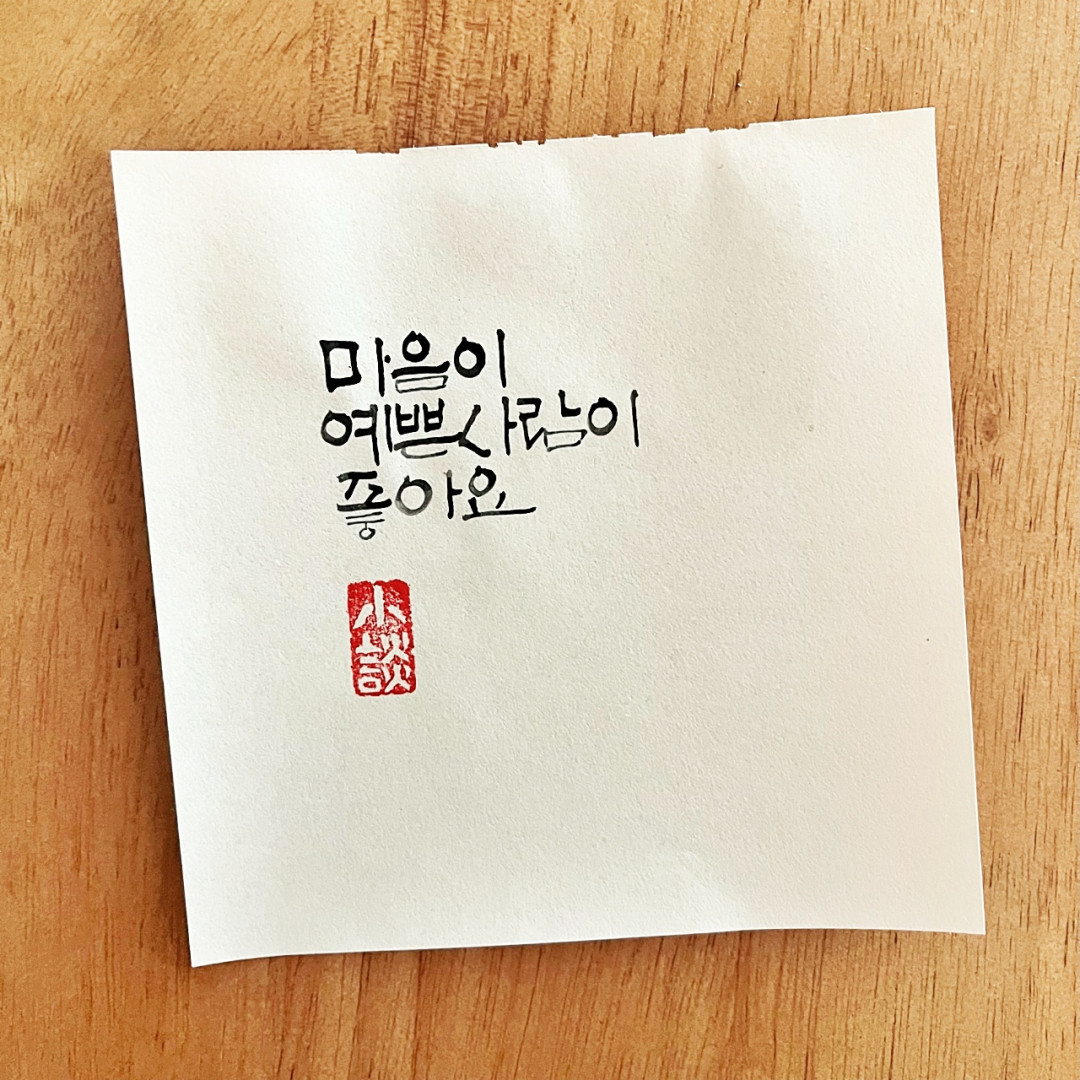 마음이
예쁜 사람이
좋아요
小
談